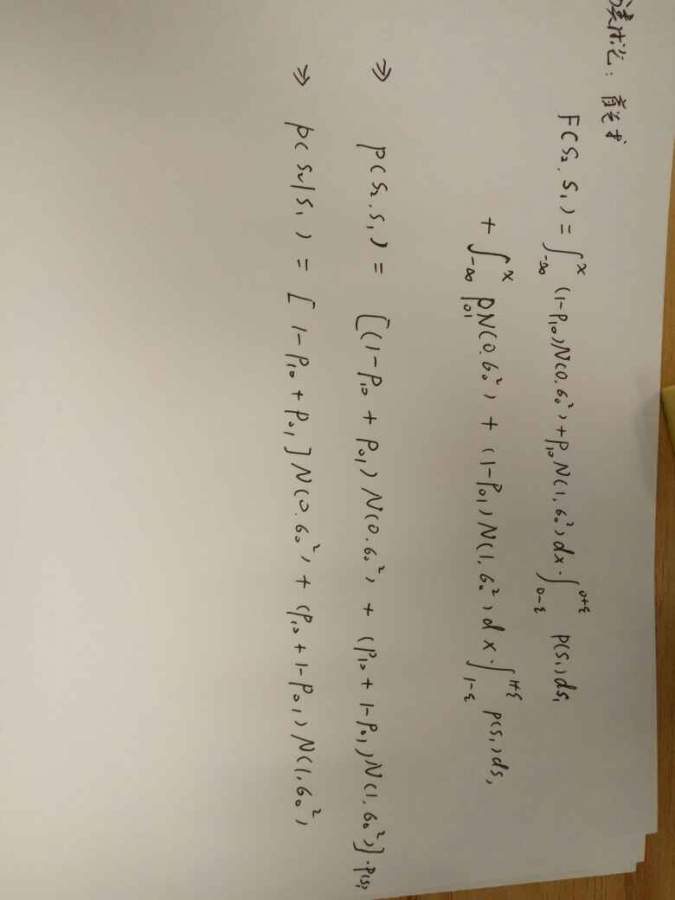 : 首先求
F(S₂, S₁) = ∫_{-∞}^{x} (1-P₁₀)N(0.6₀²)+P₁₀N(1,6₀²)dx·∫_{0-ε}^{0+ε} P(S₁)dS₁
+ ∫_{-∞}^{x} P₀₁N(0.6₀²) + (1-P₀₁)N(1,6₀²)dx·∫_{1-ε}^{1+ε} P(S₁)dS₁
⇒ P(S₂,S₁) = [(1-P₁₀+P₀₁)N(0.6₀²) + (P₁₀+1-P₀₁)N(1,6₀²)]·P(S₁
⇒ P(S₂|S₁) = [1-P₁₀+P₀₁]N(0.6₀²) + (P₁₀+1-P₀₁)N(1,6₀²)